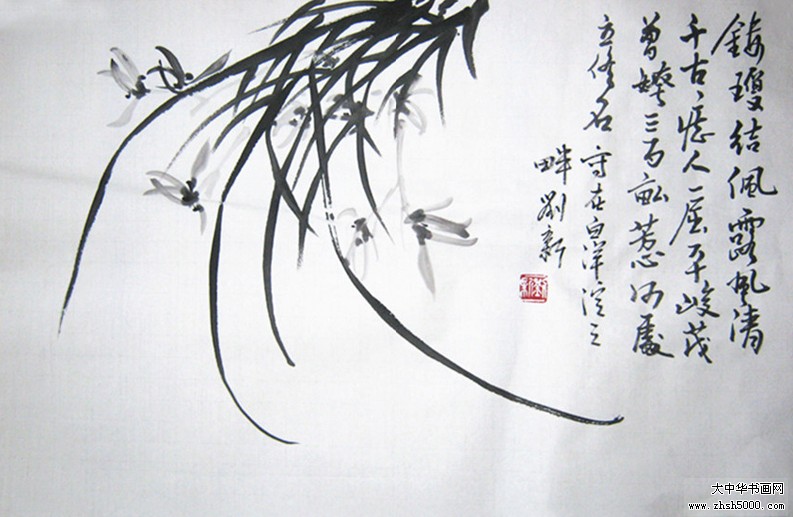 结佩露风清
千古人一屈平峻茂
曾三百亩心何处
立修名 在白洋淀之
畔刘新
大中华书画网
www.zhsh5000.com